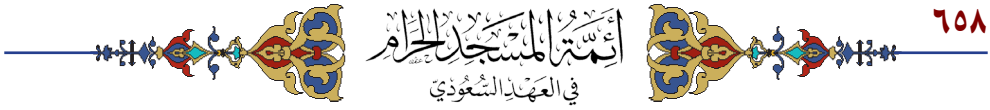 ٦٥٨
أَئِمَّةُ المَسْجِدِ الحَرَامِ
فِي العَهْدِ السُّعُودِيّ